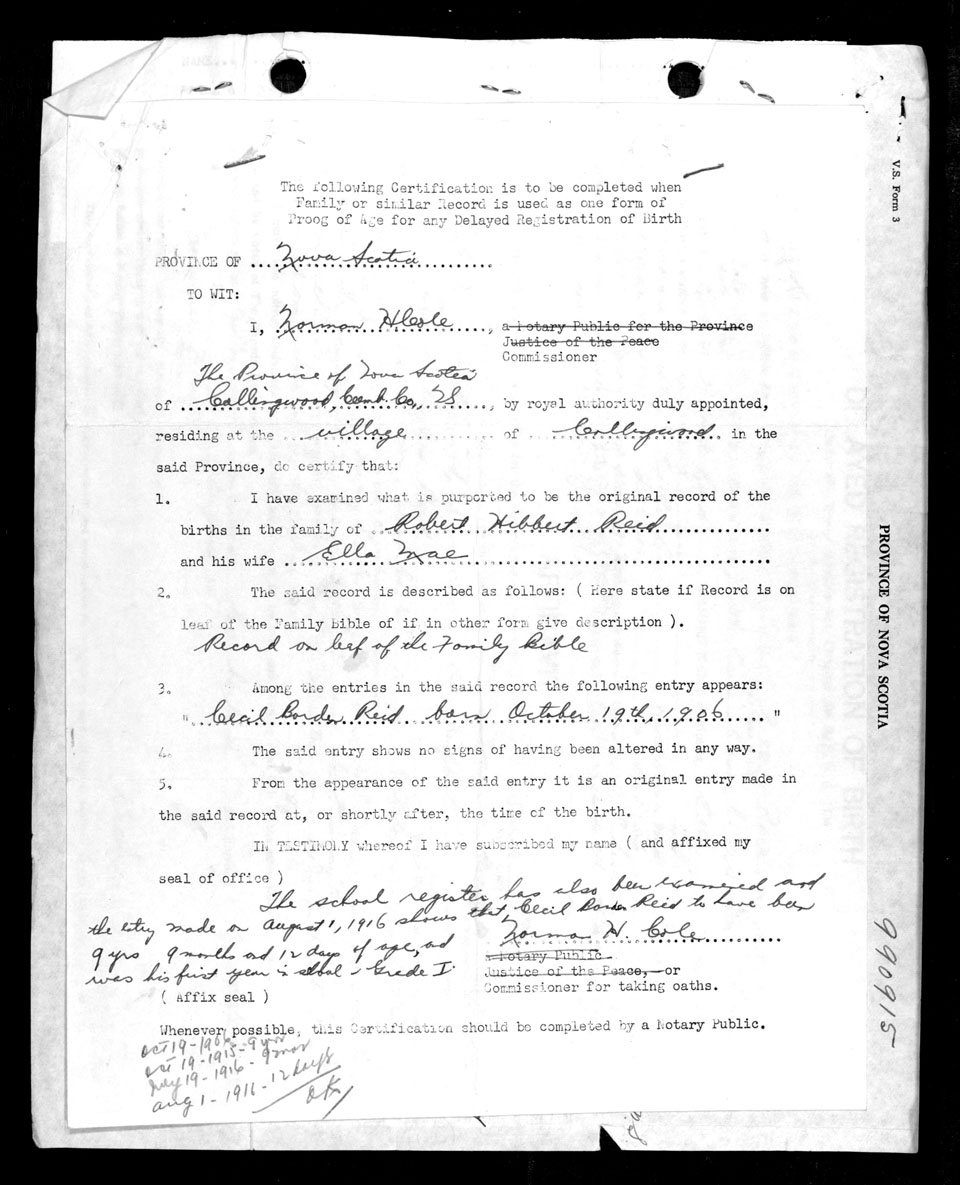 The following Certification is to be completed when
Family or similar Record is used as one form of
Proog of Age for any Delayed Registration of Birth
PROVINCE OF .... Nova Scotia ....
TO WIT:
I, Norman H Cole ....., a Notary Public for the Province
Justice of the Peace
Commissioner
The Province of Nova Scotia
of Collingwood, Cumb. Co., NS ...., by royal authority duly appointed,
residing at the ... village ... of ... Collingwood .. in the
said Province, do certify that:
1. I have examined what is purported to be the original record of the
births in the family of ..Robert Hibbert Reid..........
and his wife ..Ella Mae..........
2. The said record is described as follows: ( Here state if Record is on
leaf of the Family Bible of if in other form give description ).
Record on leaf of the Family Bible
3. Among the entries in the said record the following entry appears:
" Cecil Borden Reid born October 19th, 1906 ..... "
4. The said entry shows no signs of having been altered in any way.
5. From the appearance of the said entry it is an original entry made in
the said record at, or shortly after, the time of the birth.
IN TESTIMONY whereof I have subscribed my name ( and affixed my
seal of office )
The school register has also been examined and
the entry made on August 1, 1916 shows that Cecil Borden Reid to have been
9 yrs 9 months and 12 days of age, and
was his first year in school - Grade I.
Norman H. Cole
a Notary Public
Justice of the Peace, or
Commissioner for taking oaths.
( Affix seal )
Whenever possible, this Certification should be completed by a Notary Public.
Oct 19-1906
Oct 19-1915-9 yrs
July 19-1916-9 mos
Aug 1-1916-12 days
OK
V.S. Form 3
PROVINCE OF NOVA SCOTIA
990915